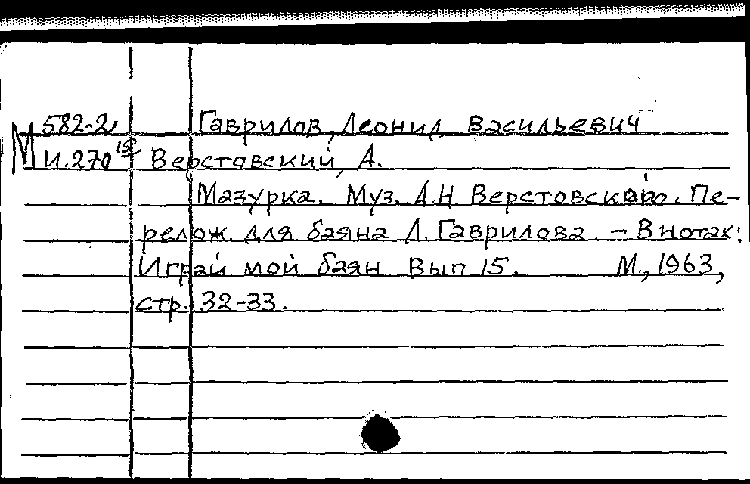 М 582-2 Гаврилов, Леонид Васильевич
И.270 Верстовский, А.
Мазурка. Муз. А.Н. Верстовского. Пе-
релож. для баяна Л. Гаврилова. – В нотах:
Играй мой баян Вып 15. М, 1963,
стр. 32-33.